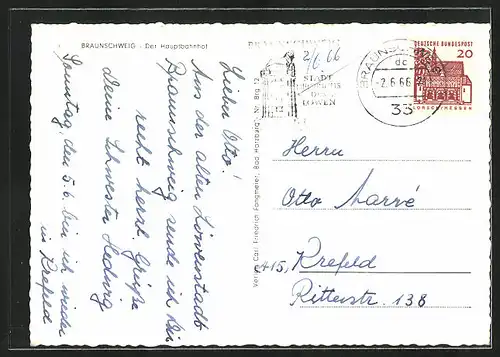 BRAUNSCHWEIG - Der Hauptbahnhof
Lieber Otto!
Aus der alten Löwenstadt
Braunschweig sende ich Dir
recht herzl. Grüße
Deine Schwester Hedwig
Sonntag, den 5.6. bin ich wieder
in Krefeld
2/6 66
STADT
HEINRICHS
DES
LÖWEN
BRAUNSCHWEIG
dc
-2.6.66
33
DEUTSCHE BUNDESPOST
20
LORSCH/HESSEN
Herrn
Otto Marré
415, Krefeld
Ritterstr. 138